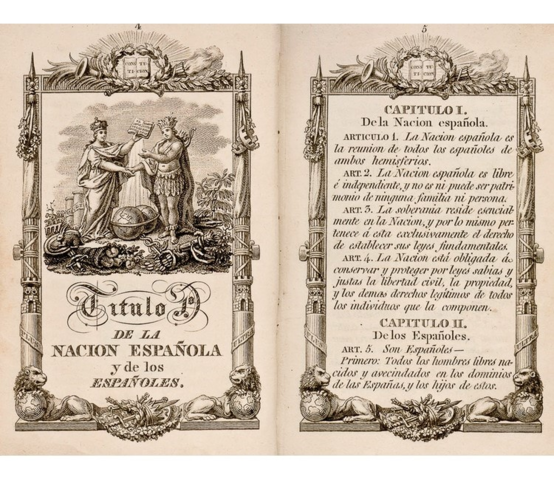 4
CONS TI
TU CION
Titulo 1º
DE LA
NACION ESPAÑOLA
y de los
ESPAÑOLES.
5
CAPITULO I.
De la Nacion española.
ARTICULO 1. La Nacion española es
la reunion de todos los españoles de
ambos hemisferios.
ART. 2. La Nacion española es libre
é independiente, y no es ni puede ser patri-
monio de ninguna familia ni persona.
ART. 3. La soberania reside esencial-
mente en la Nacion, y por lo mismo per-
tenece á esta exclusivamente el derecho
de establecer sus leyes fundamentales.
ART. 4. La Nacion está obligada á
conservar y proteger por leyes sabias y
justas la libertad civil, la propiedad,
y los demas derechos legitimos de todos
los individuos que la componen.
CAPITULO II.
De los Españoles.
ART. 5. Son Españoles—
Primero: Todos los hombres libres na-
cidos y avecindados en los dominios
de las Españas, y los hijos de estos.